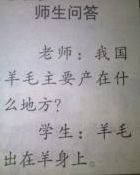 师生问答
老师：我国
羊毛主要产在什
么地方？
学生：羊毛
出在羊身上。